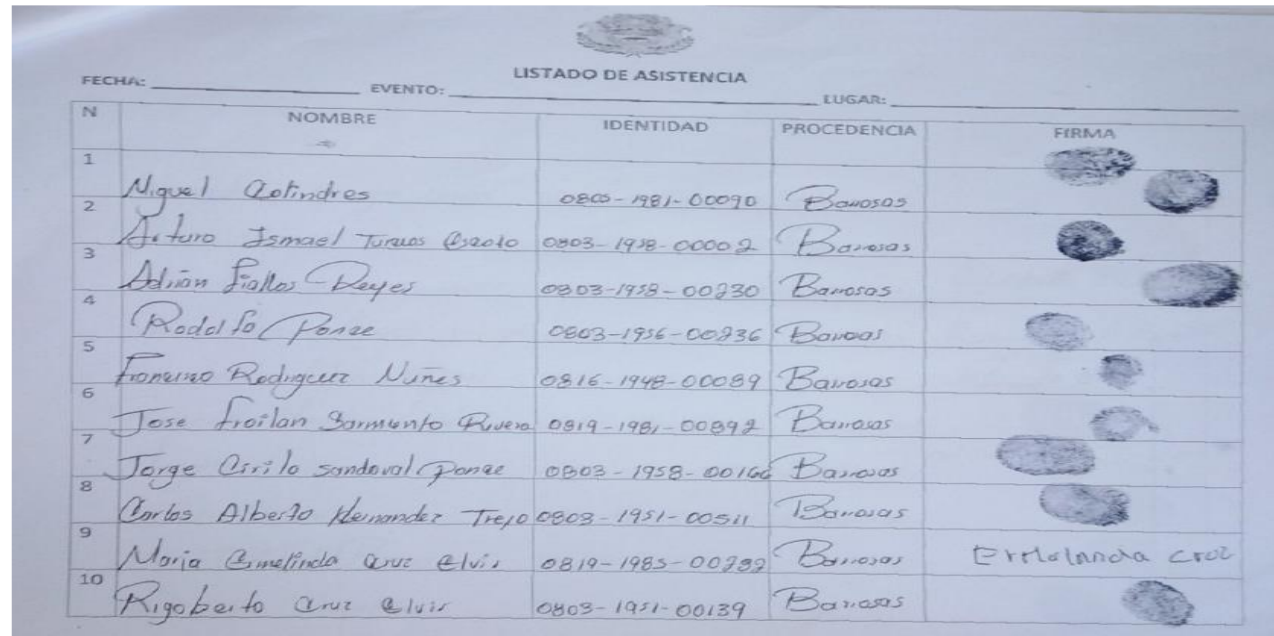 LISTADO DE ASISTENCIA
FECHA: EVENTO: LUGAR:
N NOMBRE IDENTIDAD PROCEDENCIA FIRMA
1 Miguel 0803-1981-00090 Barrosas
2 Arturo Ismael Turcios 0803-1958-00002 Barrosas
3 Adrián Fiallos Reyes 0803-1958-00230 Barrosas
4 Rodolfo Ponce 0803-1956-00236
5 Rodriguez Nuñes 0816-1948-00089 Barrosas
6 Jose Froilan Sarmiento Rivera 0819-1981-00892 Barrosas
7 Jorge Cirilo Sandoval Ponce 0803-1958-00166 Barrosas
8 Carlos Alberto Hernandez Trejo 0803-1951-00511 Barrosas
9 Maria Ermelinda Cruz Elvir 0819-1985- Barrosas Cruz
10 Rigoberto Cruz Elvir 0803-1951-00139 Barrosas